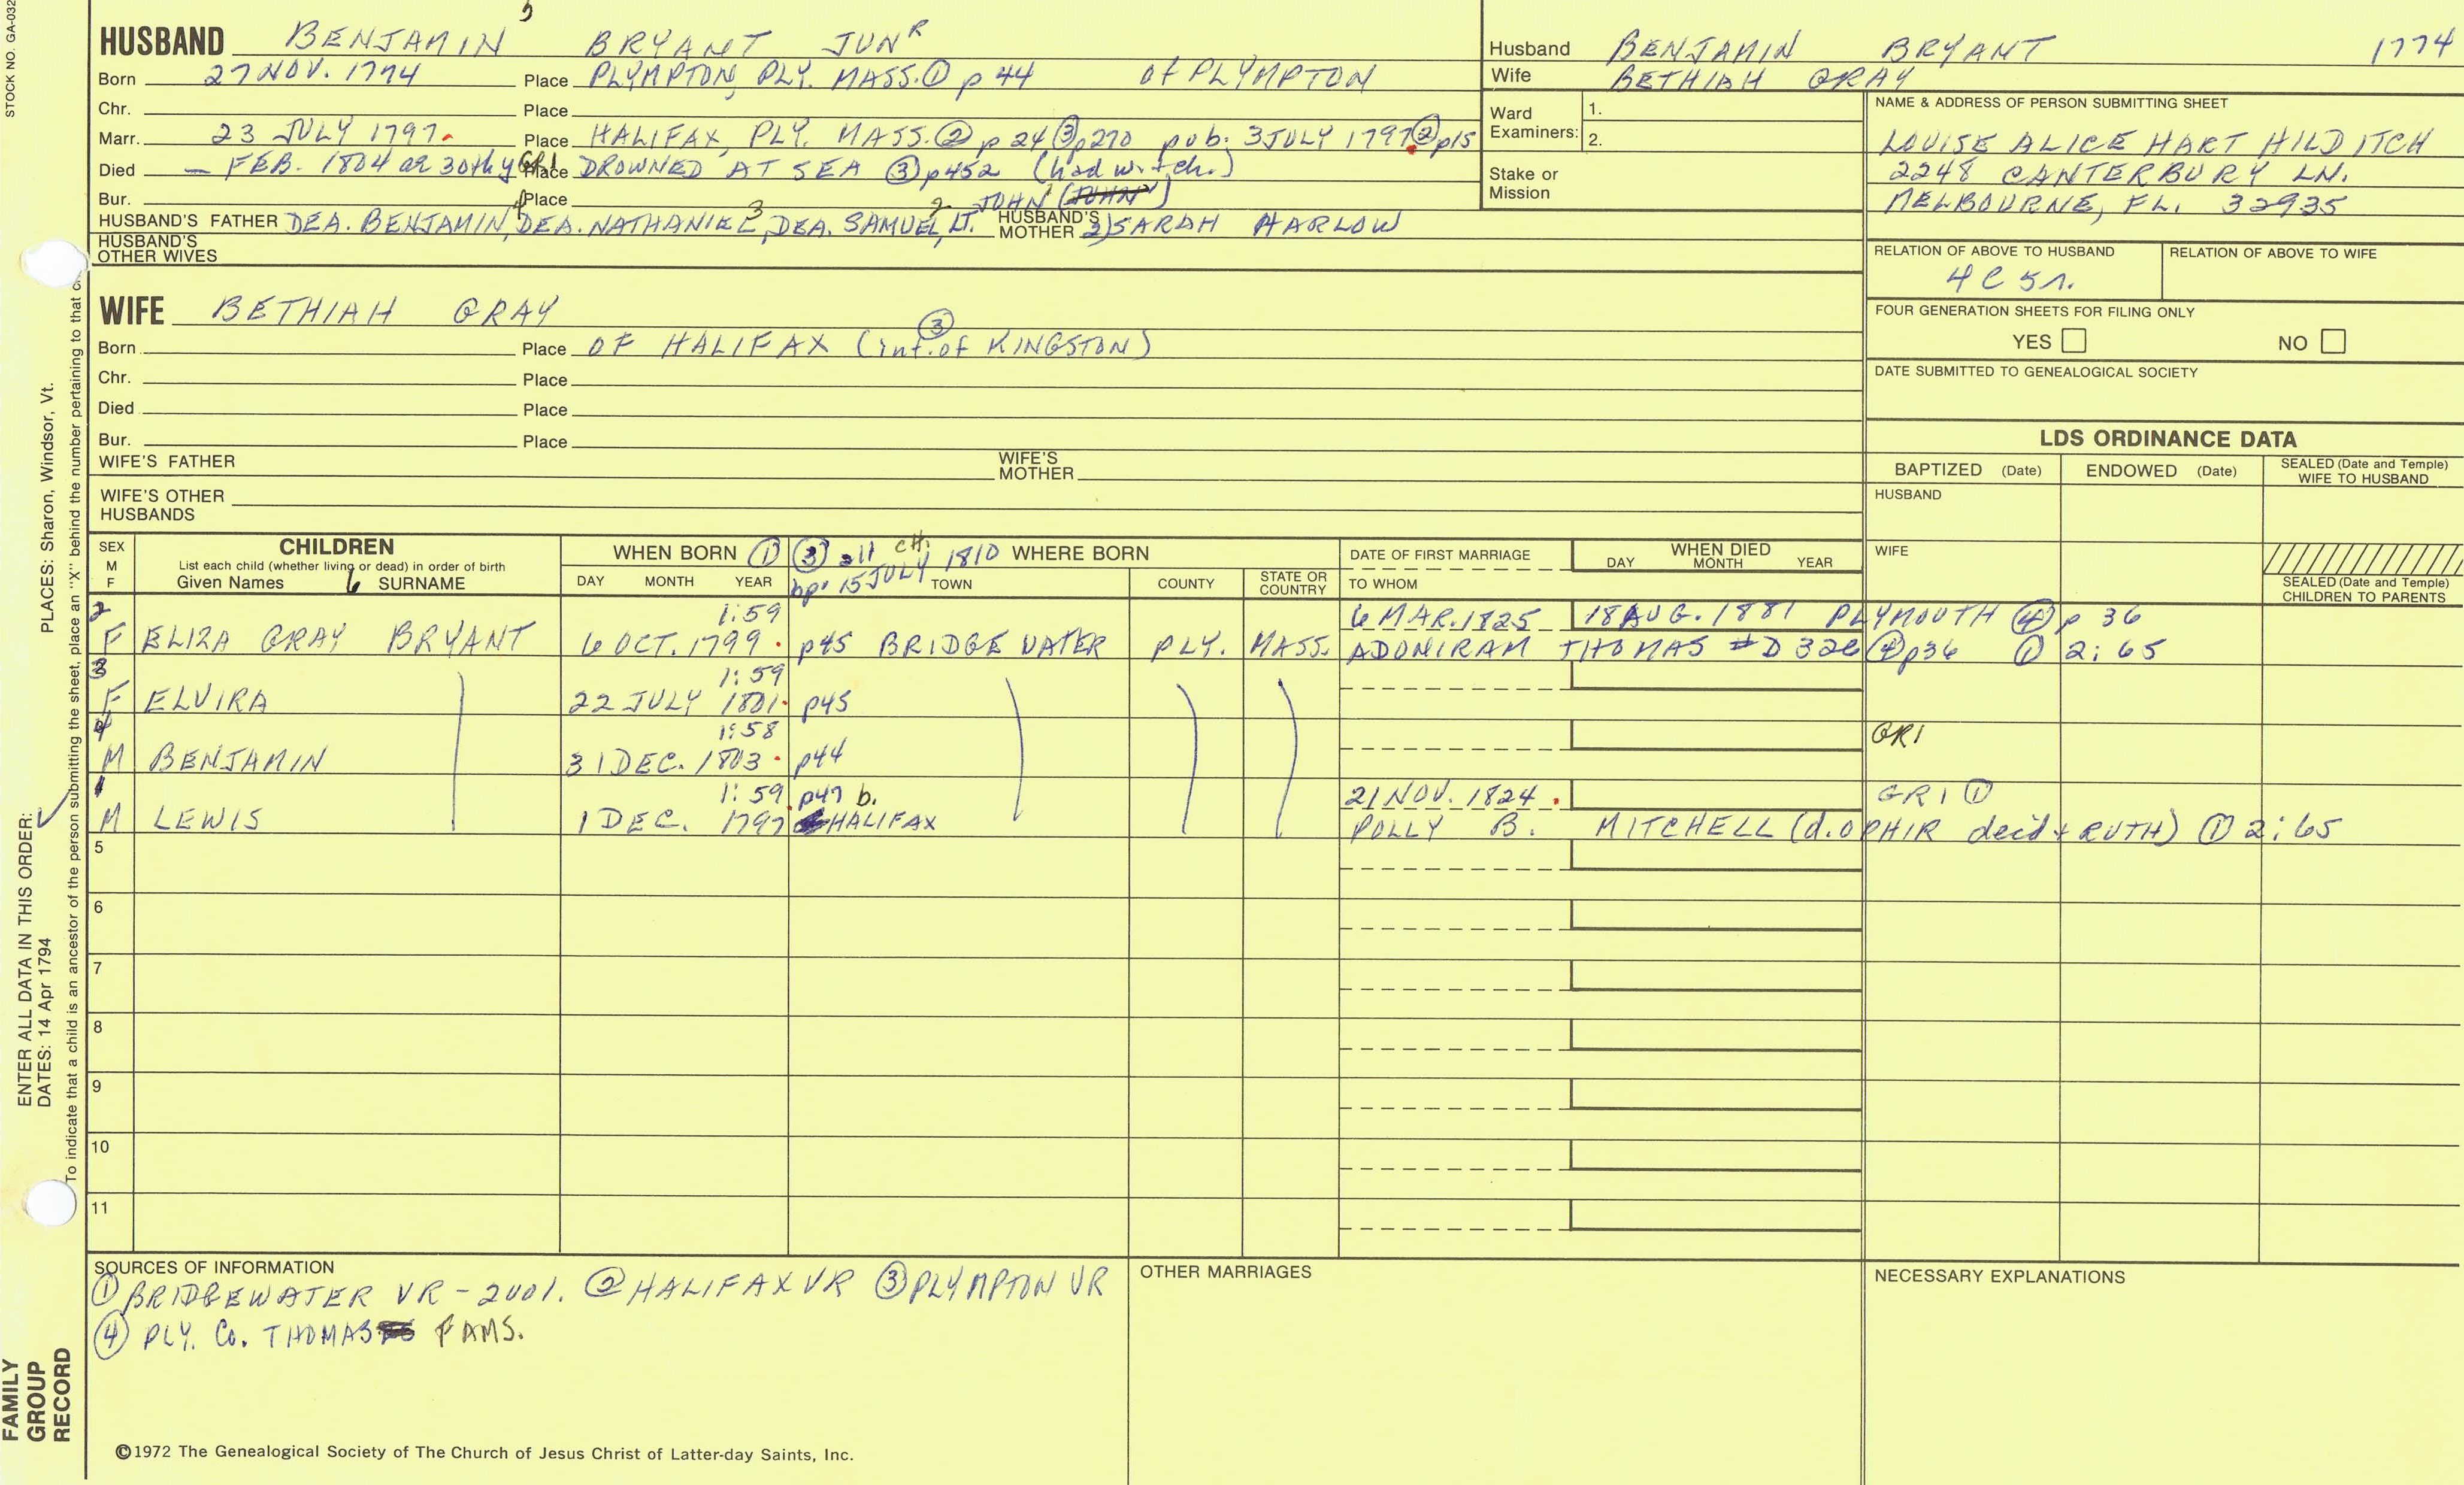 STOCK NO. GA-032
5
HUSBAND BENJAMIN BRYANT JUNR
Born 27 NOV. 1774 Place PLYMPTON, PLY. MASS. ① p 44 of PLYMPTON
Chr. Place
Marr. 23 JULY 1797. Place HALIFAX, PLY. MASS. ② p 24 ③ p270 pub. 3 JULY 1797 ② p15
Died — FEB. 1804 ae 30th y GR1 Place DROWNED AT SEA ③ p452 (had w. + ch.)
Bur. Place
HUSBAND'S FATHER DEA. BENJAMIN, 4 DEA. NATHANIEL, 3 DEA. SAMUEL, 2 LT. JOHN 1 (JOHN)
HUSBAND'S MOTHER 2) SARAH HARLOW
HUSBAND'S OTHER WIVES
Husband BENJAMIN BRYANT 1774
Wife BETHIAH GRAY
Ward Examiners: 1.
2.
Stake or Mission
NAME & ADDRESS OF PERSON SUBMITTING SHEET
LOUISE ALICE HART HILDITCH
2248 CANTERBURY LN.
MELBOURNE, FL. 32935
RELATION OF ABOVE TO HUSBAND
4C5r.
RELATION OF ABOVE TO WIFE
FOUR GENERATION SHEETS FOR FILING ONLY
YES NO
DATE SUBMITTED TO GENEALOGICAL SOCIETY
WIFE BETHIAH GRAY
Born Place OF HALIFAX (int. of KINGSTON) ③
Chr. Place
Died Place
Bur. Place
WIFE'S FATHER WIFE'S MOTHER
WIFE'S OTHER HUSBANDS
LDS ORDINANCE DATA
BAPTIZED (Date) ENDOWED (Date) SEALED (Date and Temple) WIFE TO HUSBAND
HUSBAND
WIFE
SEALED (Date and Temple) CHILDREN TO PARENTS
SEX M F
CHILDREN
List each child (whether living or dead) in order of birth
Given Names 6 SURNAME
WHEN BORN ① ③ all ch. bp. 15 JULY 1810 WHERE BORN
DAY MONTH YEAR TOWN COUNTY STATE OR COUNTRY
DATE OF FIRST MARRIAGE
TO WHOM
WHEN DIED
DAY MONTH YEAR
2 1:59 6 MAR. 1825 18 AUG. 1881 PLYMOUTH ④ p 36
F ELIZA GRAY BRYANT 6 OCT. 1799. p45 BRIDGEWATER PLY. MASS. ADONIRAM THOMAS #D 326 ④ p36 ① 2:65
3 1:59
F ELVIRA 22 JULY 1801. p45
4 1:58 GR1
M BENJAMIN 31 DEC. 1803. p44
1 1:59. p47 b. 21 NOV. 1824. GR1 ①
M LEWIS 1 DEC. 1797 HALIFAX POLLY B. MITCHELL (d. OPHIR dec'd + RUTH) ① 2:65
5
6
7
8
9
10
11
SOURCES OF INFORMATION
① BRIDGEWATER VR - 2001. ② HALIFAX VR ③ PLYMPTON VR
④ PLY. Co. THOMAS FAMS.
OTHER MARRIAGES
NECESSARY EXPLANATIONS
©1972 The Genealogical Society of The Church of Jesus Christ of Latter-day Saints, Inc.
ENTER ALL DATA IN THIS ORDER:
DATES: 14 Apr 1794
PLACES: Sharon, Windsor, Vt.
To indicate that a child is an ancestor of the person submitting the sheet, place an "X" behind the number pertaining to that
FAMILY
GROUP
RECORD